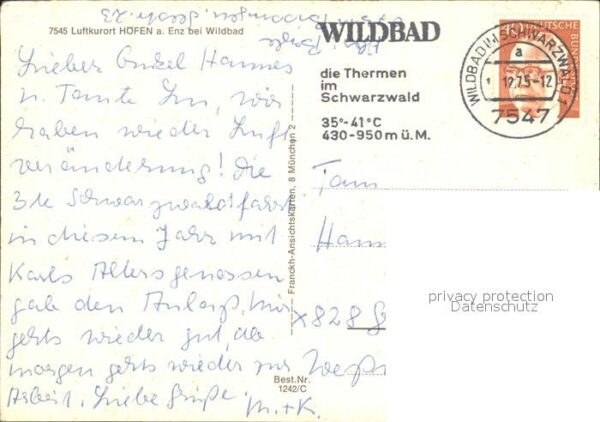 7545 Luftkurort HÖFEN a. Enz bei Wildbad
Lieber Onkel Hannes
u. Tante Lu, wir
haben wieder Luft
veränderung! Die
3te Schwarzwaldfahrt
in diesem Jahr mit
Karls Altersgenossen
gab den Anlaß, mir
gehts wieder gut, ab
morgen gehts wieder zur
Arbeit. Liebe Grüße
M.+K.
Franckh-Ansichtskarten, 8 München 2
Best.Nr.
1242/C
WILDBAD
die Thermen
im
Schwarzwald
35°-41°C
430-950 m ü. M.
DEUTSCHE BUNDES
WILDBAD IM SCHWARZWALD 1
a
12.75-12
7547
Fam
Hann
X 828 G
privacy protection
Datenschutz